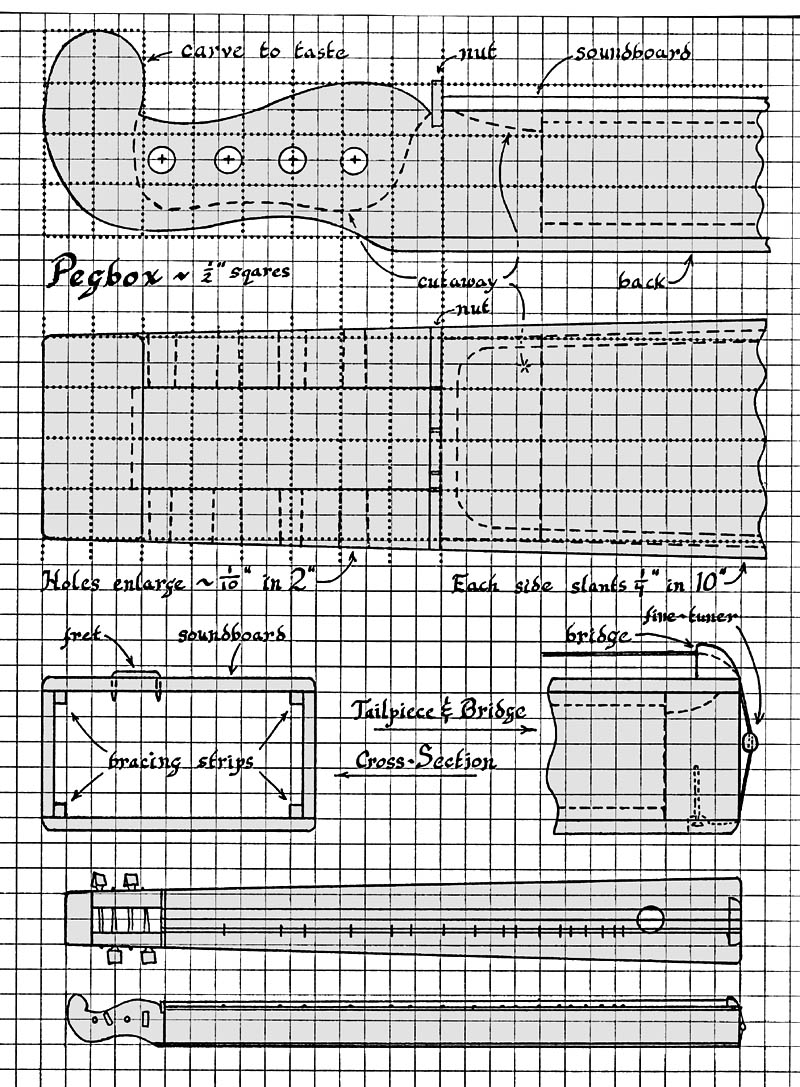 carve to taste
nut
soundboard
Pegbox ~ ½" sqares
cutaway
back
nut
Holes enlarge ~ 1/10" in 2"
Each side slants ¼" in 10"
fine-tuner
bridge
fret
soundboard
Tailpiece & Bridge
bracing strips
Cross-Section